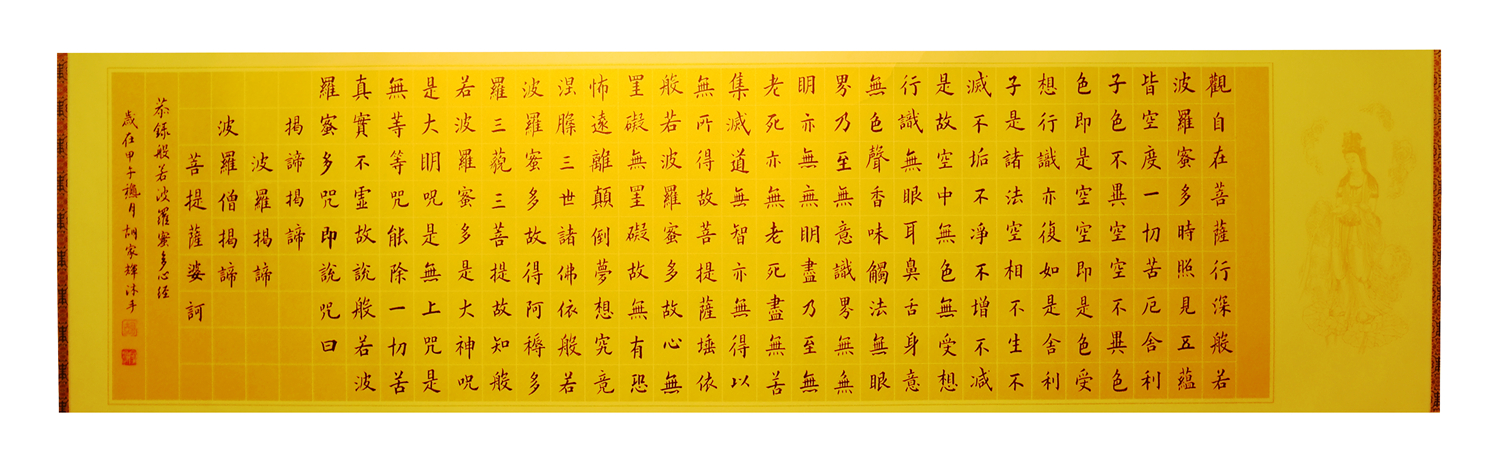 觀自在菩薩行深般若
波羅蜜多時照見五蘊
皆空度一切苦厄舍利
子色不異空空不異色
色即是空空即是色受
想行識亦復如是舍利
子是諸法空相不生不
滅不垢不淨不增不減
是故空中無色無受想
行識無眼耳鼻舌身意
無色聲香味觸法無眼
界乃至無意識界無無
明亦無無明盡乃至無
老死亦無老死盡無苦
集滅道無智亦無得以
無所得故菩提薩埵依
般若波羅蜜多故心無
罣礙無罣礙故無有恐
怖遠離顛倒夢想究竟
涅槃三世諸佛依般若
波羅蜜多故得阿耨多
羅三藐三菩提故知般
若波羅蜜多是大神咒
是大明咒是無上咒是
無等等咒能除一切苦
真實不虛故說般若波
羅蜜多咒即說咒曰
揭諦揭諦
波羅揭諦
波羅僧揭諦
菩提薩婆訶
恭録般若波羅蜜多心经
歲在甲午穐月胡家輝沐手